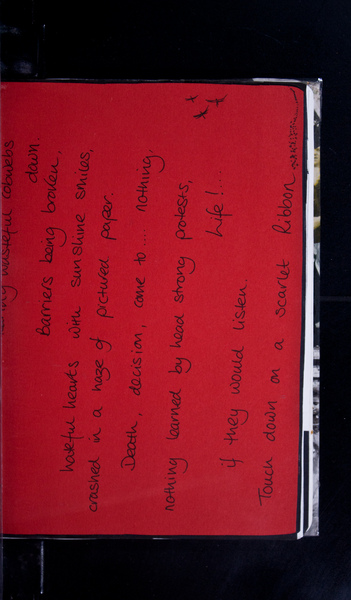 wasteful cobwebs
down.
Barriers being broken,
hateful hearts with sunshine smiles,
crashed in a haze of pictured paper.
Death, decision, come to .... nothing,
nothing learned by head strong protests,
if they would listen
Life! ....
Touch down on a scarlet Ribbon